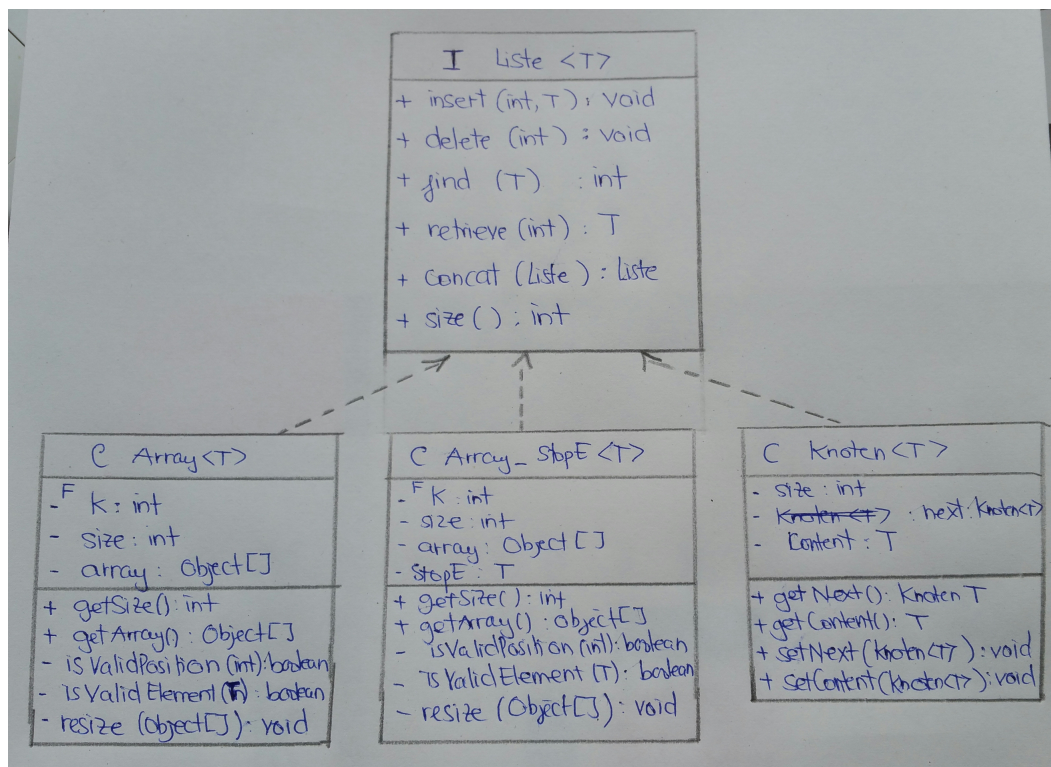 I Liste <T>
+ insert (int, T) : void
+ delete (int) : void
+ find (T) : int
+ retrieve (int) : T
+ concat (Liste) : Liste
+ size ( ) : int
C Array<T>
- F K : int
- size : int
- array : Object []
+ getSize() : int
+ getArray() : Object[]
- isValidPosition (int): boolean
- isValidElement (T) : boolean
- resize (Object[]) : void
C Array_StopE <T>
- F K : int
- size : int
- array : Object []
- StopE : T
+ getSize () : int
+ getArray() : Object[]
- isValidPosition (int): boolean
- isValidElement (T) : boolean
- resize (Object[]) : void
C Knoten <T>
- size : int
- Knoten <T> : next : Knoten<T>
- Content : T
+ getNext() : Knoten T
+ getContent() : T
+ setNext (Knoten<T>) : void
+ setContent (Knoten<T>) : void